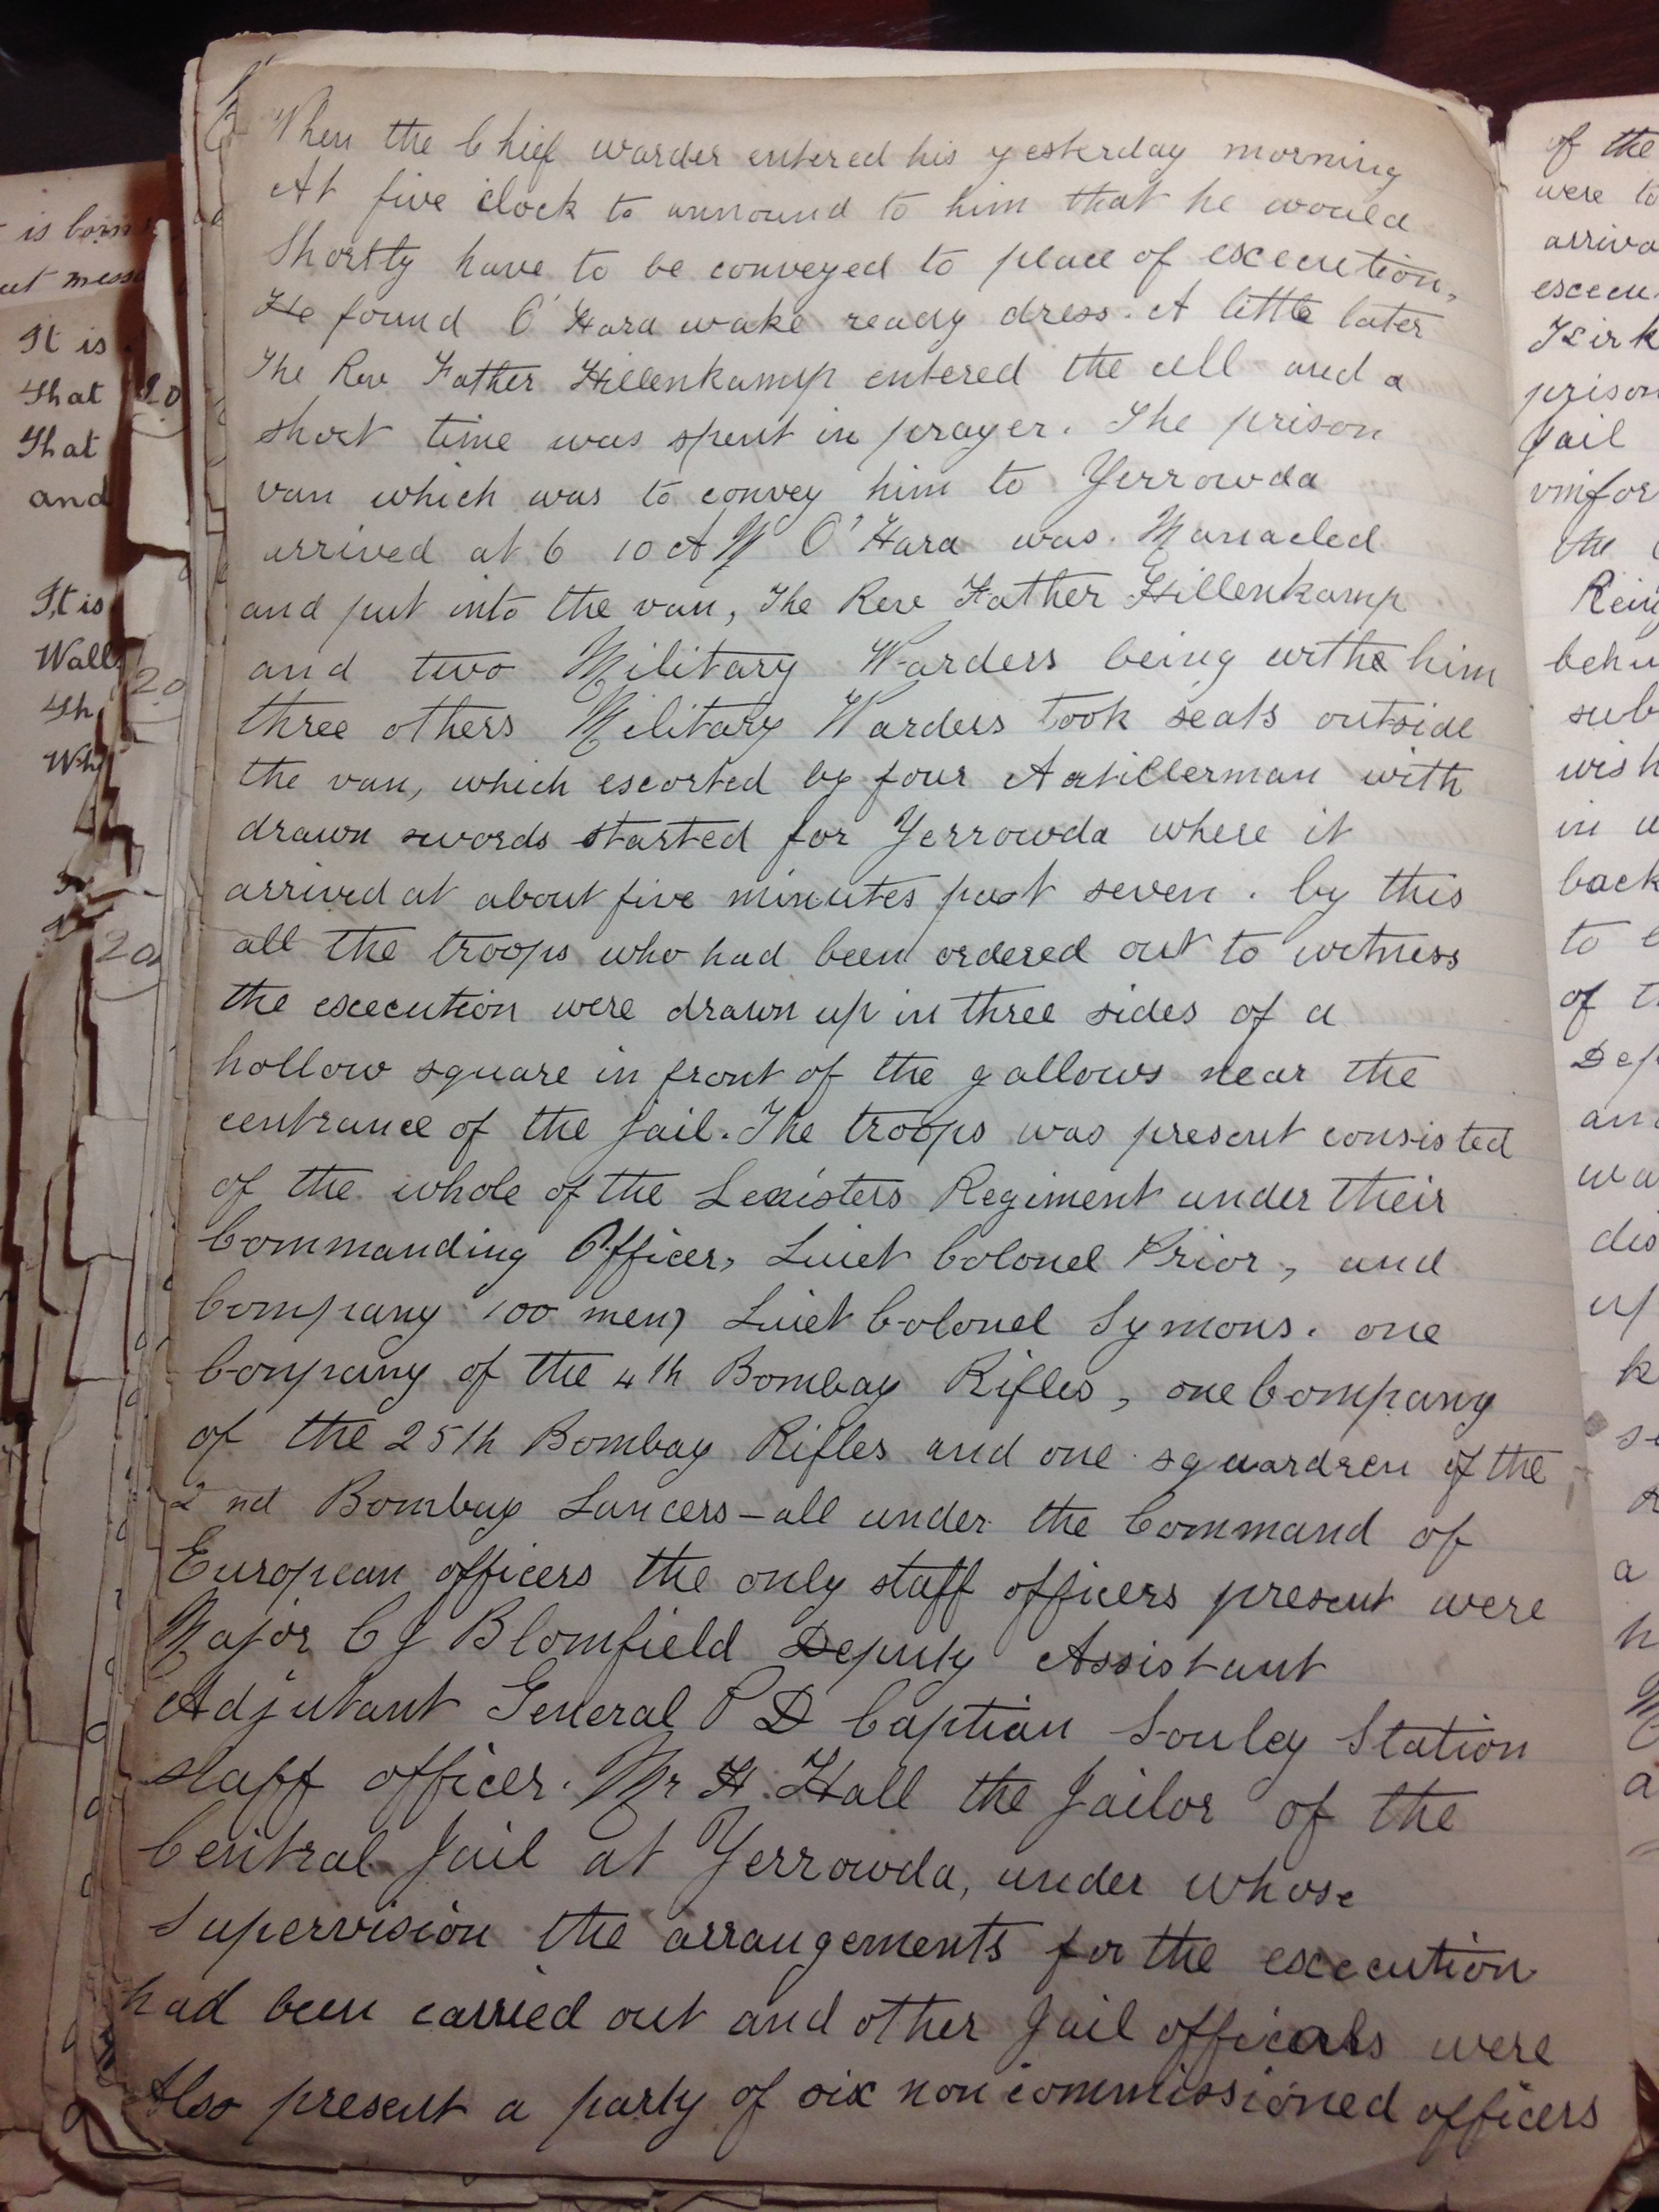 When the Chief warder entered his yesterday morning
At five clock to annound to him that he would
Shortly have to be conveyed to place of excecution,
He found O'Hara wake ready dress. A little later
The Rev Father Hillenkamp entered the cell and a
short time was spent in prayer. The prison
van which was to convey him to Yerrowda
arrived at 6 10 A M O'Hara was. Manacled
and put into the van, The Rev Father Hillenkamp
and two Military Warders being withe him
three others Military Warders took seats outside
the van, which escorted by four Aatillerman with
drawn swords started for Yerrowda where it
arrived at about five minutes past seven. by this
all the troops who had been ordered out to witness
the excecution were drawn up in three sides of a
hollow square in front of the gallows near the
centrance of the Jail. The troops was present consisted
of the whole of the Leaisters Regiment under their
Commanding Officer, Luiet Colonel Prior, and
Company 100 men, Luiet Colonel Symons. one
Conpany of the 4th Bombay Rifles, one Company
of the 25th Bombay Rifles and one squardren of the
2nd Bombay Lancers - all under the Command of
European officers the only staff officers present were
Major C J Blomfield Deputy Assistant
Adjutant General P D Captian Souley Station
staff officer. Mr H. Hall the Jailor of the
Central Jail at Yerrowda, under whose
Supervision the arrangements for the excecution
had been carried out and other Jail officals were
Also present a party of six non commissioned officers
It is
that 20
That
and
It is
Wall
20
20
of the
were to
back
of
a